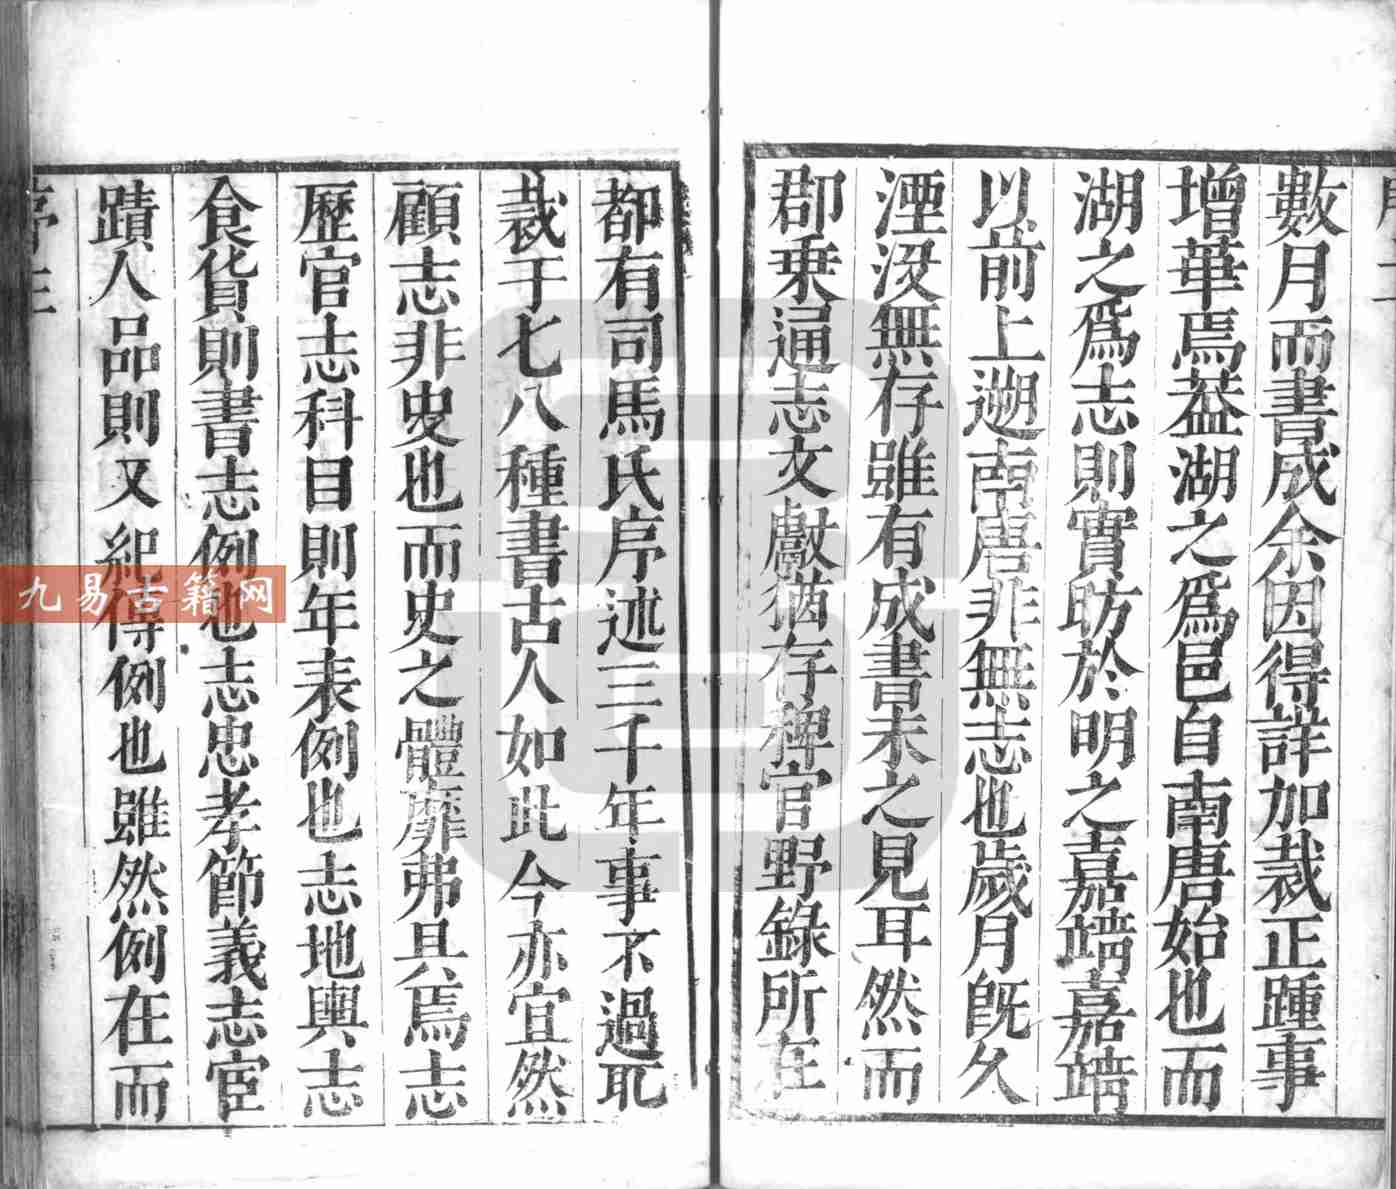 數月而書成余因得詳加裁正踵事
增華焉葢湖之爲邑自南唐始也而
湖之爲志則實昉於明之嘉靖嘉靖
以前上遡南唐非無志也歲月旣久
湮没無存雖有成書未之見耳然而
郡乗通志文獻猶存稗官野錄所在
都有司馬氏序述三千年事不過取
裁于七八種書古人如此今亦宜然
顧志非史也而史之體靡弗具焉志
歷官志科目則年表例也志地輿志
食貨則書志例也志忠孝節義志宦
蹟人品則又紀傳例也雖然例在而
序三
九易古籍网